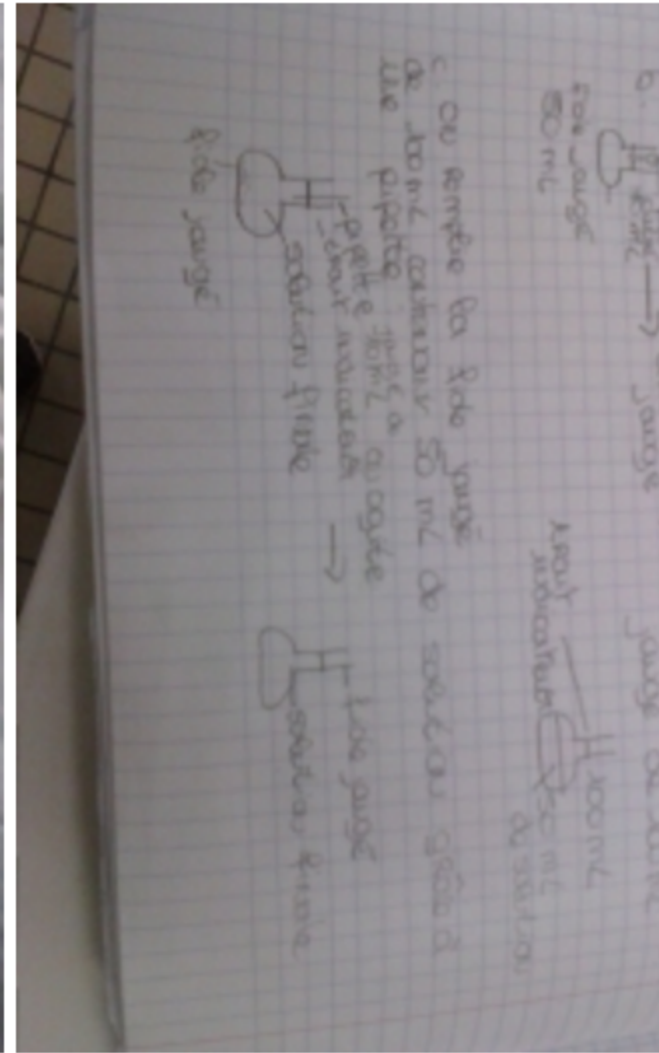 b.
jaugé
jaugé de 100 mL
fiole jaugé
50 mL
100 mL
trait
indicateur
50 mL
de solution
c. on remplie la fiole jaugé
de 100 mL contenant 50 mL de solution grâce à
une pipette
pipette
trait indicateur
solution finale
fiole jaugé
→
fiole jaugé
solution finale